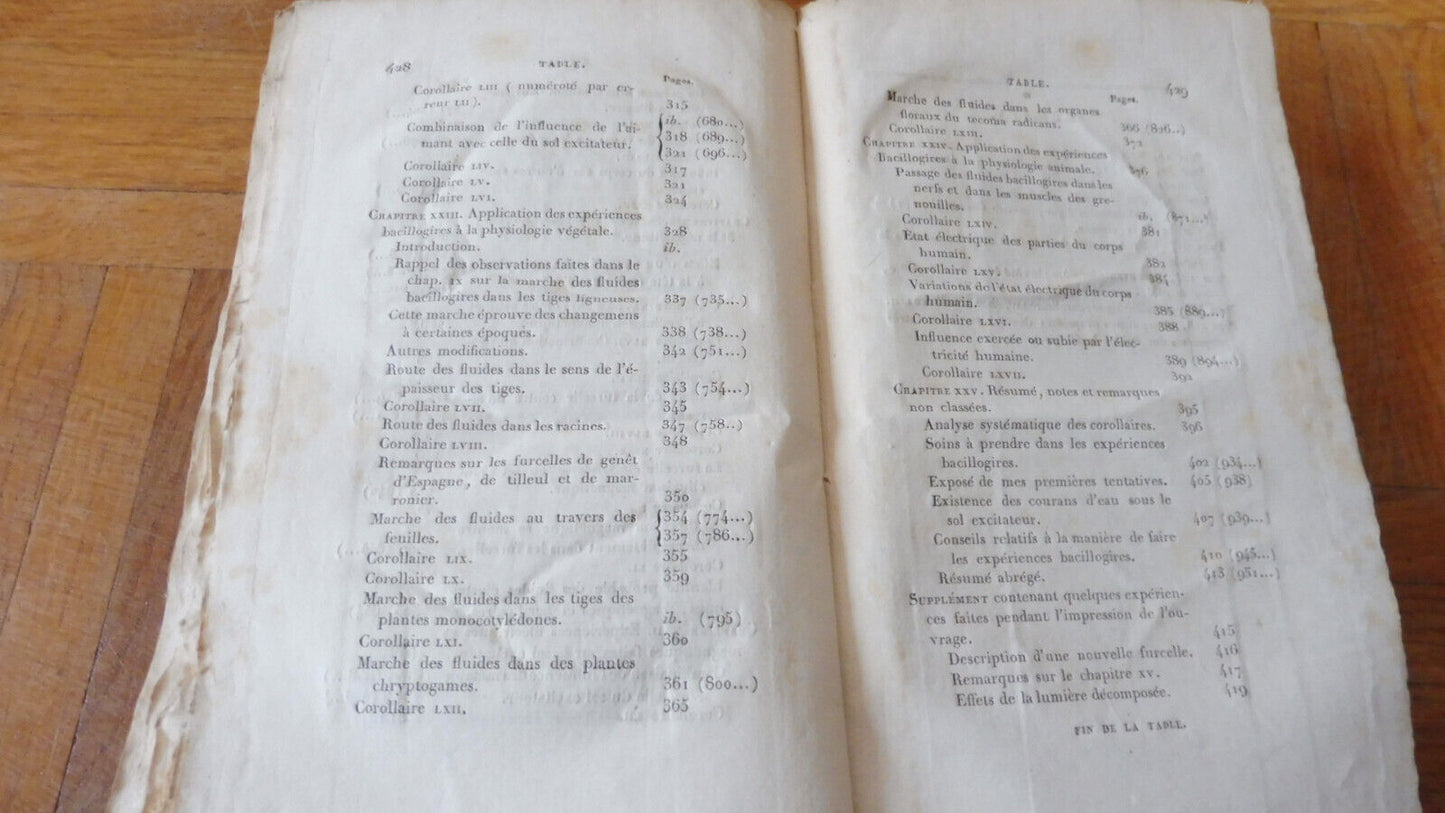 428 TABLE.
Pages.
Corollaire LIII ( numéroté par er-
reur LII ). 315
Combinaison de l'influence de l'ai-
mant avec celle du sol excitateur. { ib. (680...)
318 (689...)
322 (696...)
Corollaire LIV. 317
Corollaire LV. 321
Corollaire LVI. 324
CHAPITRE XXIII. Application des expériences
bacillogires à la physiologie végétale. 328
Introduction. ib.
Rappel des observations faites dans le
chap. IX sur la marche des fluides
bacillogires dans les tiges ligneuses. 337 (735...)
Cette marche éprouve des changemens
à certaines époques. 338 (738...)
Autres modifications. 342 (751...)
Route des fluides dans le sens de l'é-
paisseur des tiges. 343 (754...)
Corollaire LVII. 345
Route des fluides dans les racines. 347 (758..)
Corollaire LVIII. 348
Remarques sur les furcelles de genêt
d'Espagne, de tilleul et de mar-
ronier. 350
Marche des fluides au travers des { 354 (774...)
feuilles. 357 (786...)
Corollaire LIX. 355
Corollaire LX. 359
Marche des fluides dans les tiges des
plantes monocotylédones. ib. (795)
Corollaire LXI. 360
Marche des fluides dans des plantes
chryptogames. 361 (800...)
Corollaire LXII. 365
TABLE. 429
Pages.
Marche des fluides dans les organes
floraux du tecoma radicans. 366 (826..)
Corollaire LXIII. 372
CHAPITRE XXIV. Application des expériences
Bacillogires à la physiologie animale. 376
Passage des fluides bacillogires dans les
nerfs et dans les muscles des gre-
nouilles. ib. (871...)
Corollaire LXIV. 381
Etat électrique des parties du corps
humain. 382
Corollaire LXV. 384
Variations de l'état électrique du corps
humain. 385 (889...)
Corollaire LXVI. 388
Influence exercée ou subie par l'élec-
tricité humaine. 389 (894...)
Corollaire LXVII. 392
CHAPITRE XXV. Résumé, notes et remarques
non classées. 395
Analyse systématique des corollaires. 396
Soins à prendre dans les expériences
bacillogires. 402 (934...)
Exposé de mes premières tentatives. 405 (938)
Existence des courans d'eau sous le
sol excitateur. 407 (939...)
Conseils relatifs à la manière de faire
les expériences bacillogires. 410 (945...)
Résumé abrégé. 413 (951...)
SUPPLÉMENT contenant quelques expérien-
ces faites pendant l'impression de l'ou-
vrage. 415
Description d'une nouvelle furcelle. 416
Remarques sur le chapitre XV. 417
Effets de la lumière décomposée. 419
FIN DE LA TABLE.